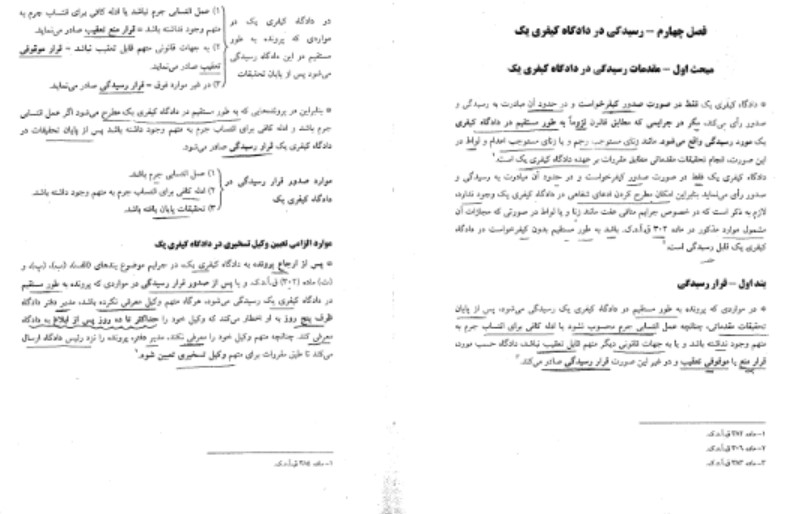 فصل چهارم – رسیدگی در دادگاه کیفری یک
مبحث اول – مقدمات رسیدگی در دادگاه کیفری یک
* دادگاه کیفری یک فقط در صورت صدور کیفرخواست و در حدود آن مبادرت به رسیدگی و
صدور رأی می‌کند، مگر در جرایمی که مطابق قانون لزوماً به طور مستقیم در دادگاه کیفری
یک مورد رسیدگی واقع می‌شود، مانند زنای مستوجب رجم و یا زنای مستوجب اعدام و لواط در
این صورت، انجام تحقیقات مقدماتی مطابق مقررات بر عهده دادگاه کیفری یک است.۱
دادگاه کیفری یک فقط در صورت صدور کیفرخواست و در حدود آن مبادرت به رسیدگی و
صدور رأی می‌نماید. بنابراین امکان مطرح کردن ادعای شفاهی در دادگاه کیفری یک وجود ندارد.
لازم به ذکر است که در خصوص جرایم منافی عفت مانند زنا و یا لواط در صورتی که مجازات آن
مشمول موارد مذکور در ماده ۳۰۲ ق.آ.د.ک. باشد به طور مستقیم بدون کیفرخواست در دادگاه
کیفری یک قابل رسیدگی است.۲
بند اول – قرار رسیدگی
* در مواردی که پرونده به طور مستقیم در دادگاه کیفری یک رسیدگی می‌شود، پس از پایان
تحقیقات مقدماتی، چنانچه عمل انتسابی جرم محسوب نشود یا ادله کافی برای انتساب جرم به
متهم وجود نداشته باشد و یا به جهات قانونی دیگر متهم قابل تعقیب نباشد، دادگاه حسب مورد،
قرار منع یا موقوفی تعقیب و در غیر این صورت قرار رسیدگی صادر می‌کند.۳
۱– ماده ۳۸۲ ق.آ.د.ک.
۲– ماده ۳۰۶ ق.آ.د.ک.
۳– ماده ۳۸۳ ق.آ.د.ک.
در دادگاه کیفری یک در
مواردی که پرونده به طور
مستقیم در این دادگاه رسیدگی
می‌شود پس از پایان تحقیقات
۱) عمل انتسابی جرم نباشد یا ادله کافی برای انتساب جرم به
متهم وجود نداشته باشد = قرار منع تعقیب صادر می‌نماید.
۲) به جهات قانونی متهم قابل تعقیب نباشد = قرار موقوفی
تعقیب صادر می‌نماید.
۳) در غیر موارد فوق = قرار رسیدگی صادر می‌نماید.
* بنابراین در پرونده‌هایی که به طور مستقیم در دادگاه کیفری یک مطرح می‌شود اگر عمل انتسابی
جرم باشد و ادله کافی برای انتساب جرم به متهم وجود داشته باشد پس از پایان تحقیقات در
دادگاه کیفری یک قرار رسیدگی صادر می‌شود.
موارد صدور قرار رسیدگی در
دادگاه کیفری یک
۱) عمل انتسابی جرم باشد.
۲) ادله کافی برای انتساب جرم به متهم وجود داشته باشد.
۳) تحقیقات پایان یافته باشد.
موارد الزامی تعیین وکیل تسخیری در دادگاه کیفری یک
* پس از ارجاع پرونده به دادگاه کیفری یک، در جرایم موضوع بندهای (الف)، (ب)، (پ) و
(ت) ماده (۳۰۲) ق.آ.د.ک. و یا پس از صدور قرار رسیدگی در مواردی که پرونده به طور مستقیم
در دادگاه کیفری یک رسیدگی می‌شود، هرگاه متهم وکیل معرفی نکرده باشد، مدیر دفتر دادگاه
ظرف پنج روز به او اخطار می‌کند که وکیل خود را حداکثر تا ده روز پس از ابلاغ به دادگاه
معرفی کند. چنانچه متهم وکیل خود را معرفی نکند، مدیر دفتر، پرونده را نزد رئیس دادگاه ارسال
می‌کند تا طبق مقررات برای متهم وکیل تسخیری تعیین شود.۱
۱– ماده ۳۸۴ ق.آ.د.ک.